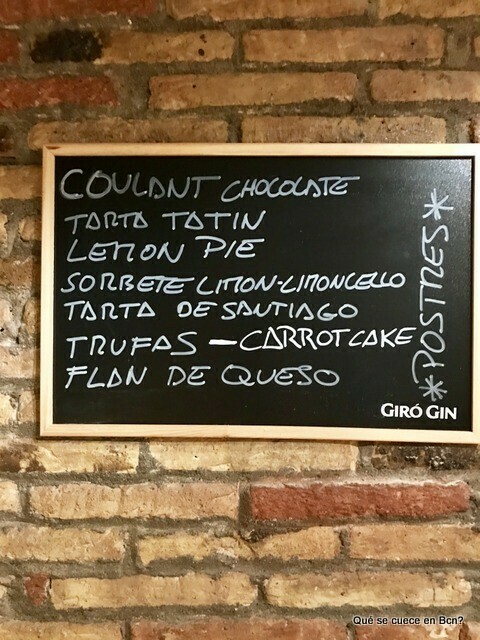 COULANT CHOCOLATE
TARTA TATIN
LEMON PIE
SORBETE LIMON-LIMONCELLO
TARTA DE SANTIAGO
TRUFAS - CARROT CAKE
FLAN DE QUESO
*POSTRES*
GIRÓ GIN
Qué se cuece en Bcn?